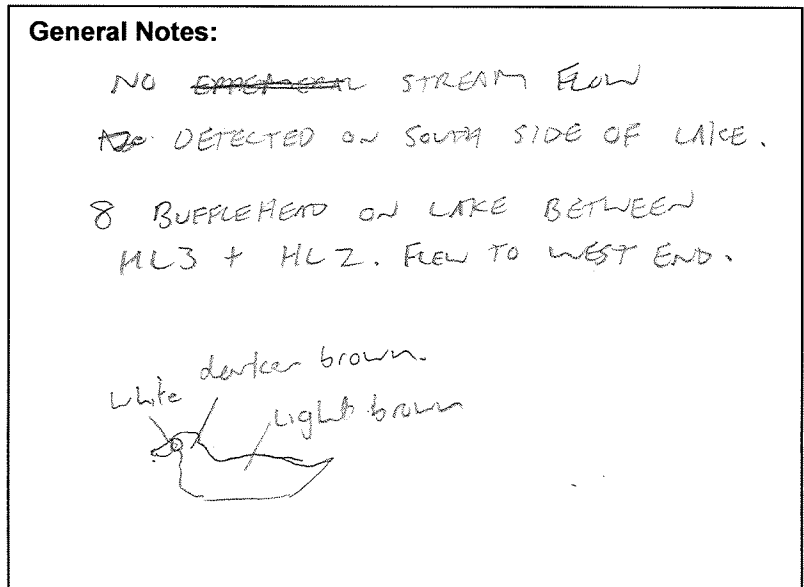 General Notes:
NO STREAM FLOW
DETECTED ON SOUTH SIDE OF LAKE.
8 BUFFLEHEAD ON LAKE BETWEEN
HL3 + HL2. FLEW TO WEST END.
darker brown.
white
light brown